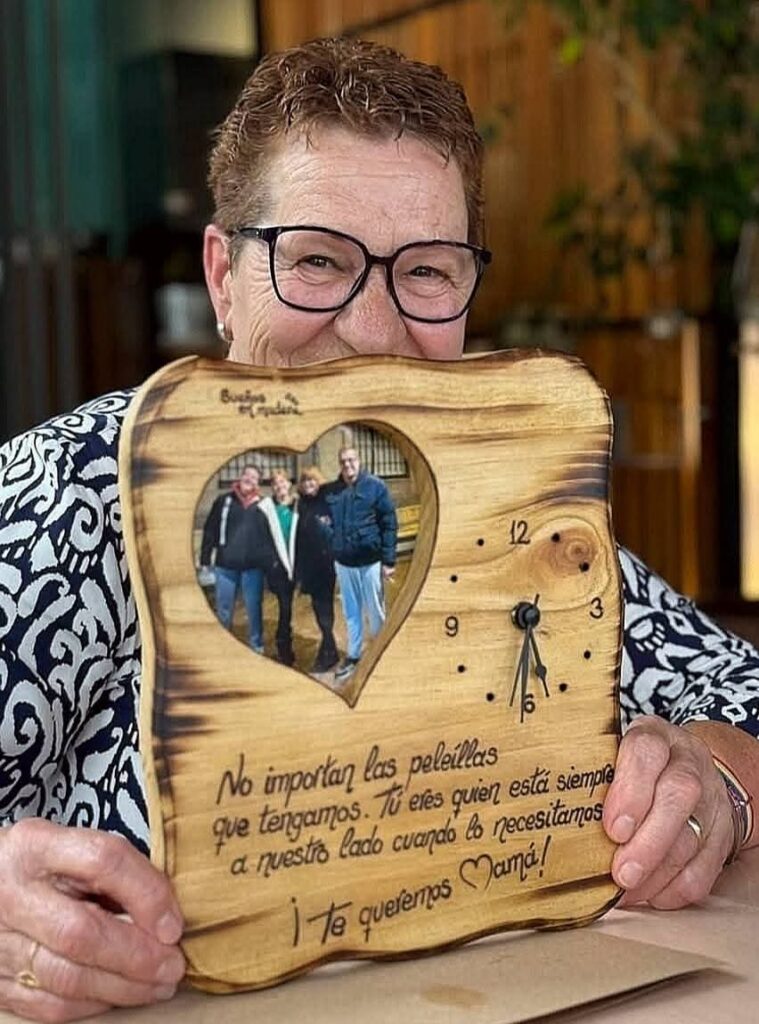 Sueños
en madera
12
3
6
9
No importan las peleillas
que tengamos. Tú eres quien está siempre
a nuestro lado cuando lo necesitamos
¡Te queremos Mamá!